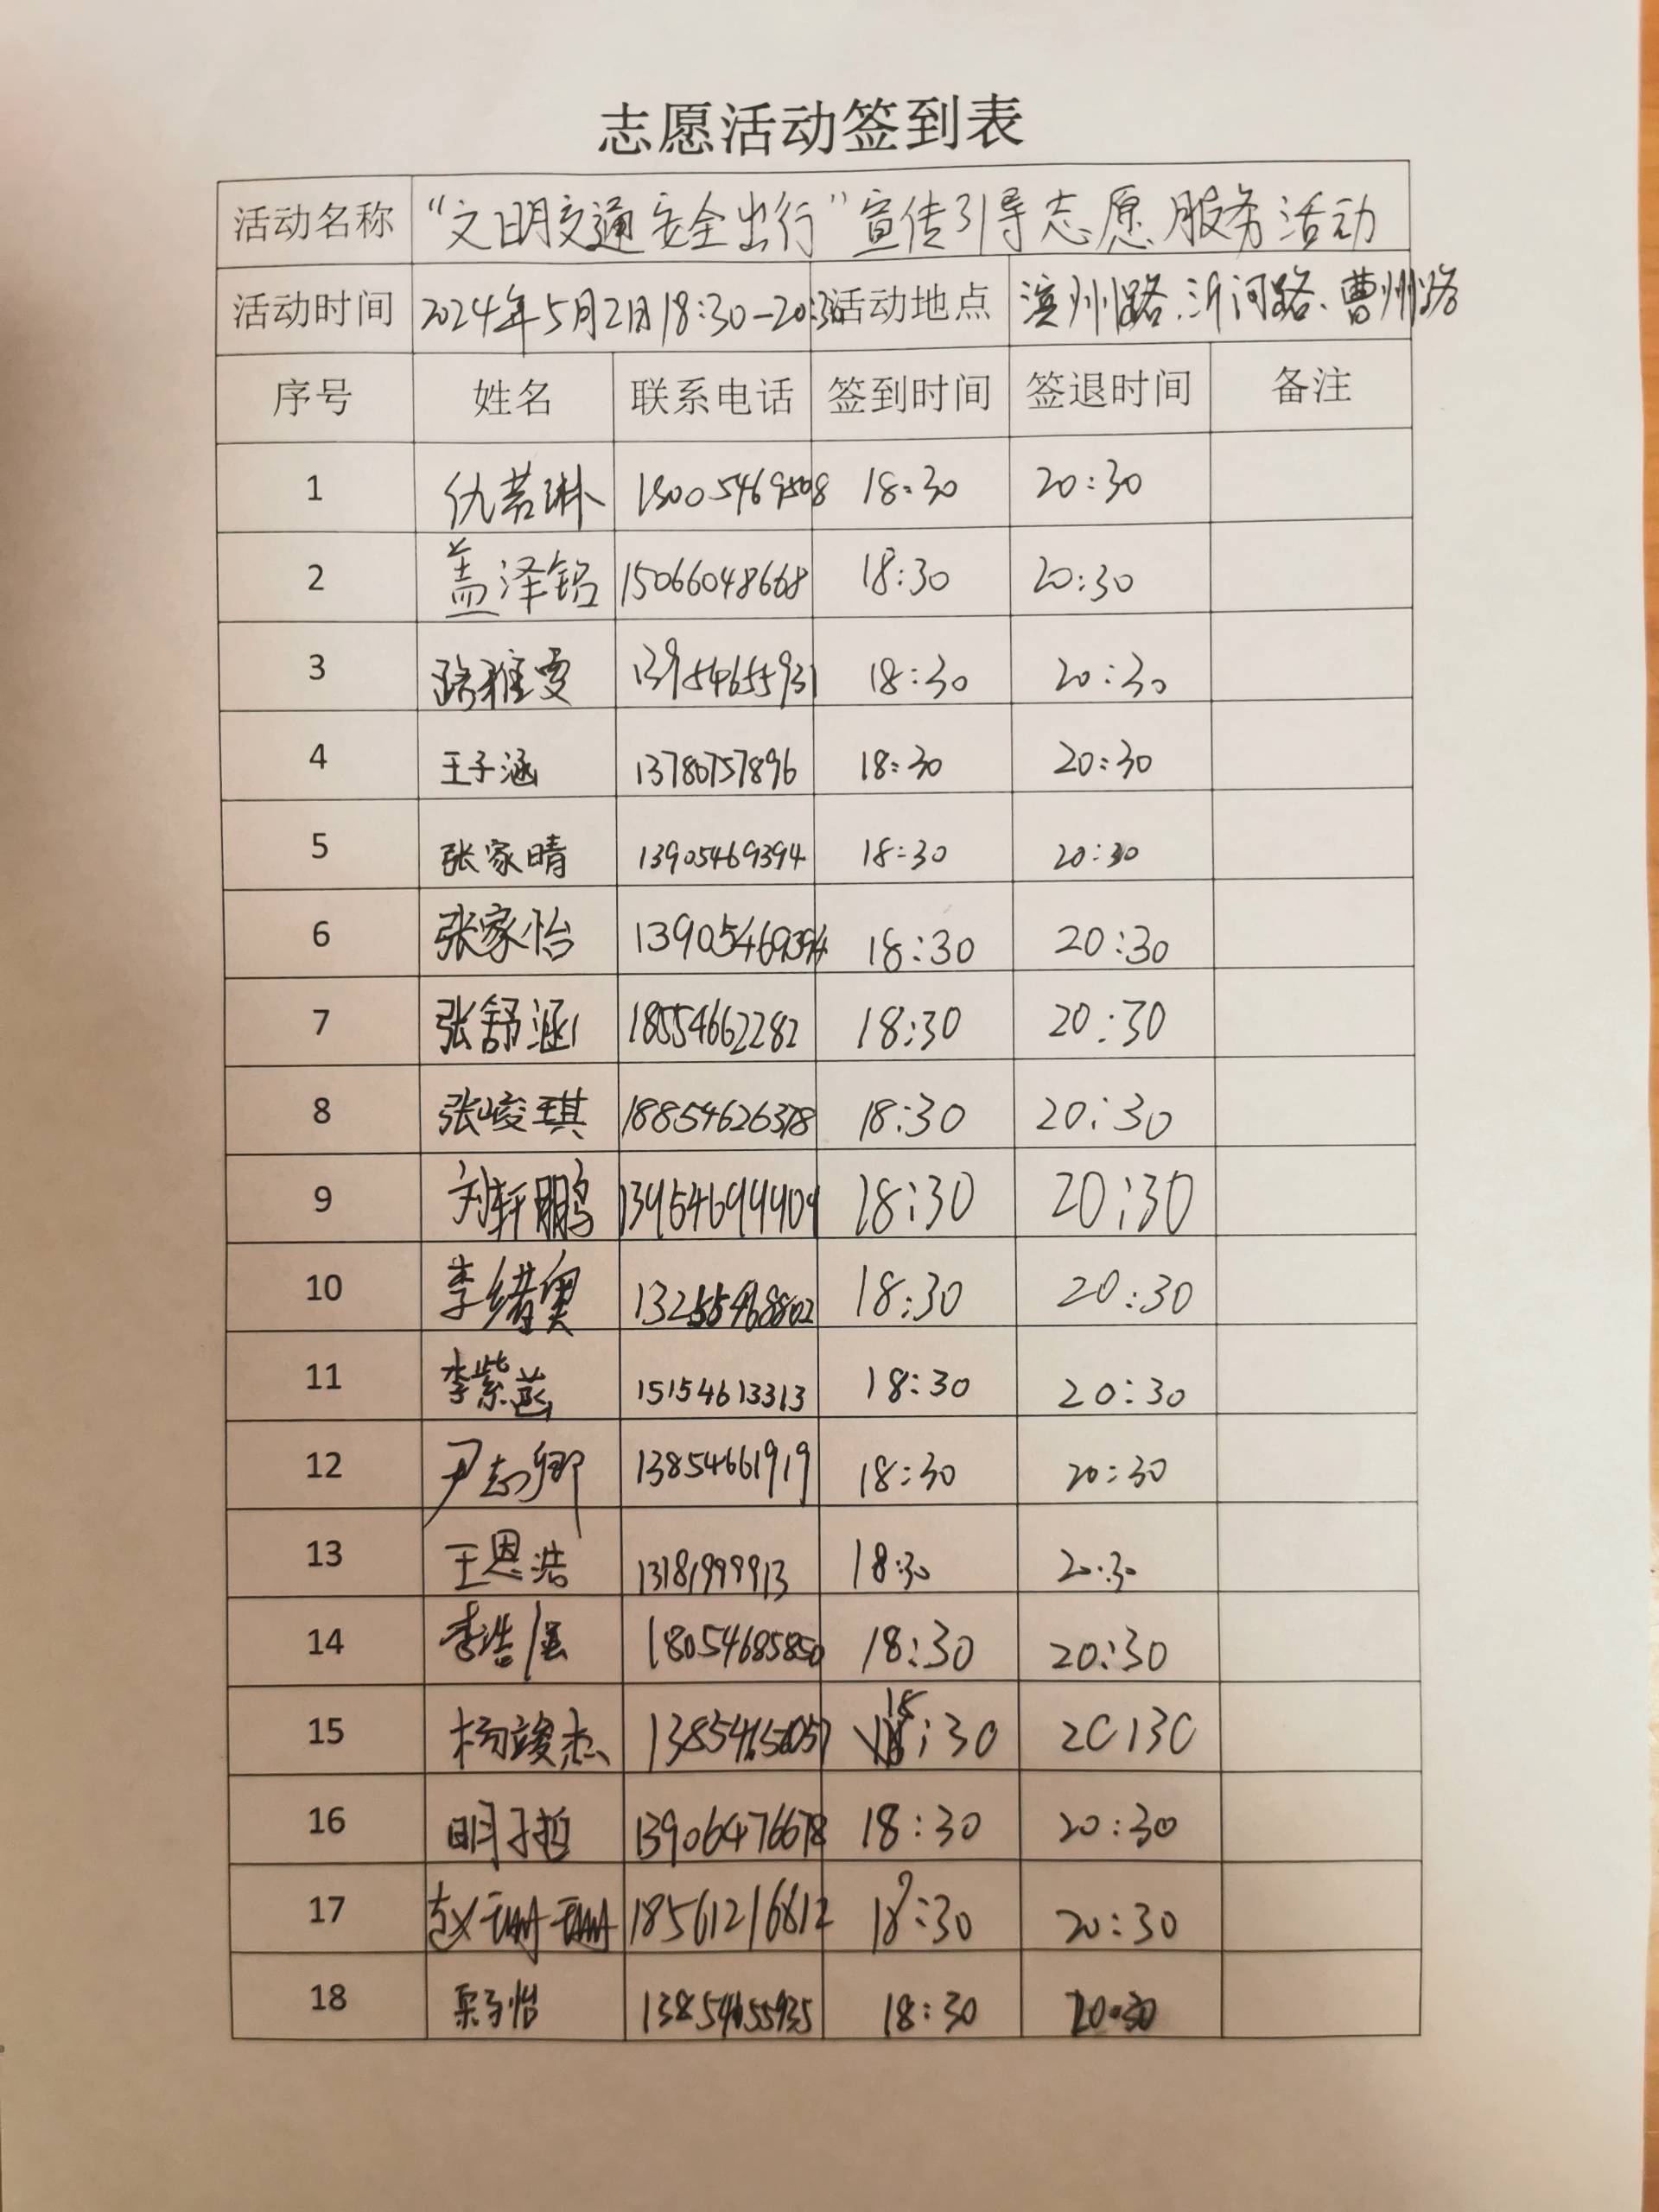 志愿活动签到表
活动名称 “文明交通 安全出行”宣传引导志愿服务活动
活动时间 2024年5月2日18:30-20:30 活动地点 滨州路、沂河路、曹州路
序号 姓名 联系电话 签到时间 签退时间 备注
1 仇若琳 18:30 20:30
2 盖泽铭 15066048668 18:30 20:30
3 路雅雯 13954655931 18:30 20:30
4 王子涵 13780757896 18:30 20:30
5 张家晴 13905469394 18:30 20:30
6 张家怡 13905469394 18:30 20:30
7 张舒涵 18554662282 18:30 20:30
8 张峻琪 18854626378 18:30 20:30
9 刘轩鹏 18:30 20:30
10 李绪奥 13255468802 18:30 20:30
11 李紫菡 15154613313 18:30 20:30
12 尹志卿 13854661919 18:30 20:30
13 王恩浩 13181999913 18:30 20:30
14 李浩 18054685850 18:30 20:30
15 杨竣杰 18:30 20:30
16 明子哲 13906476678 18:30 20:30
17 赵珊珊 18561216812 18:30 20:30
18 栗子怡 13854655935 18:30 20:30